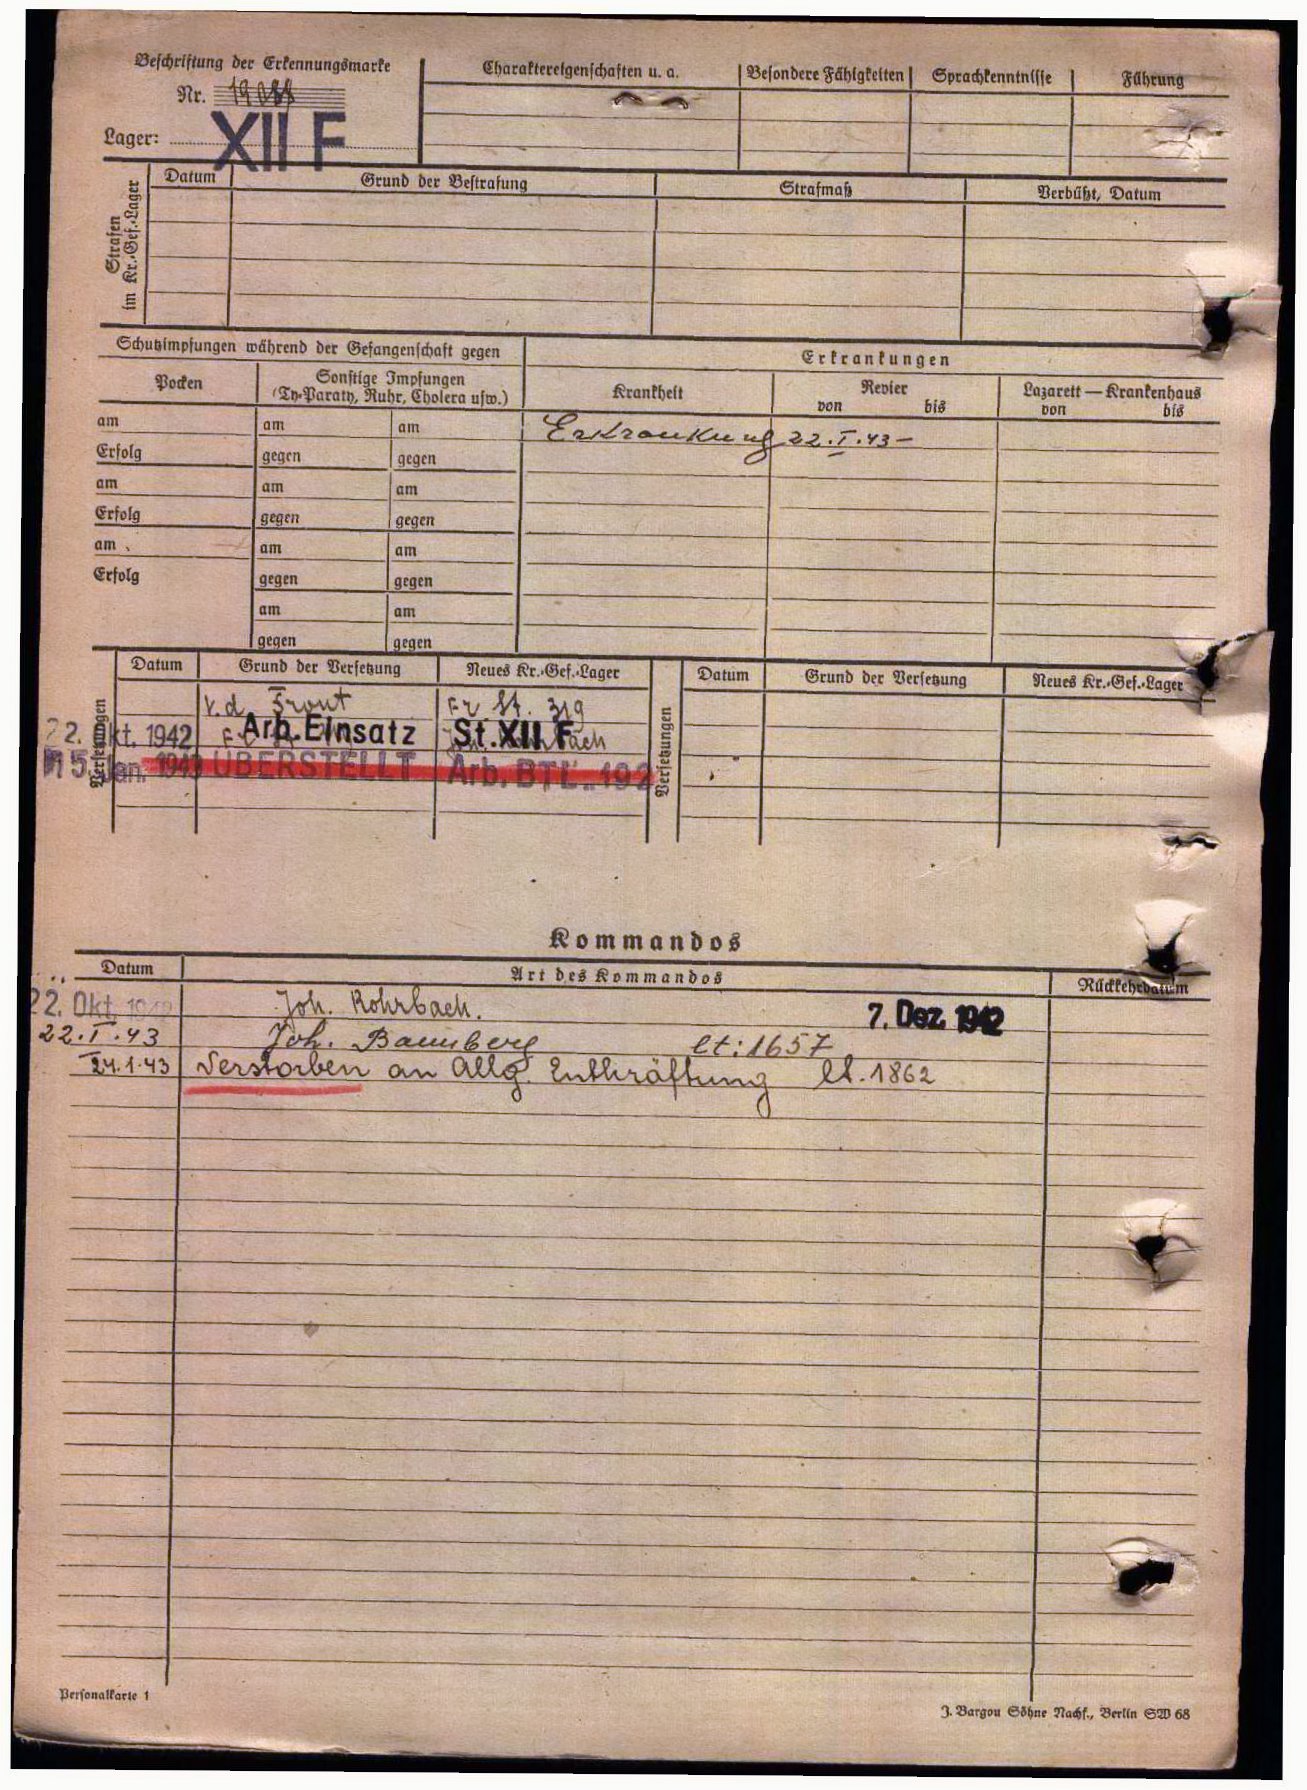 Beschriftung der Erkennungsmarke
Nr. 19088
Lager: XII F
Charaktereigenschaften u. a.
Besondere Fähigkeiten
Sprachkenntnisse
Führung
Strafen
im Kr.-Gef.-Lager
Datum
Grund der Bestrafung
Strafmaß
Verbüßt, Datum
Schutzimpfungen während der Gefangenschaft gegen
Erkrankungen
Pocken
Sonstige Impfungen
(Ty-Paraty, Ruhr, Cholera usw.)
Krankheit
Revier
von bis
Lazarett — Krankenhaus
von bis
am am am
Erkrankung 22.I.43 –
Erfolg gegen gegen
am am am
Erfolg gegen gegen
am am am
Erfolg gegen gegen
am am
gegen gegen
Versetzungen
Datum
Grund der Versetzung
Neues Kr.-Gef.-Lager
Versetzungen
Datum
Grund der Versetzung
Neues Kr.-Gef.-Lager
v. d. Front Fr. St. 319
22. Okt. 1942 Arb. Einsatz St. XII F
5. Jan. 1943 ÜBERSTELLT Arb. BTL. 192
Kommandos
Datum
Art des Kommandos
Rückkehrdatum
22. Okt. 1942 Joh. Rohrbach. 7. Dez. 1942
22.I.43 Joh. Baumberg lt: 1657
24.1.43 Verstorben an Allg. Entkräftung lt. 1862
Personalkarte 1
J. Bargou Söhne Nachf., Berlin SW 68